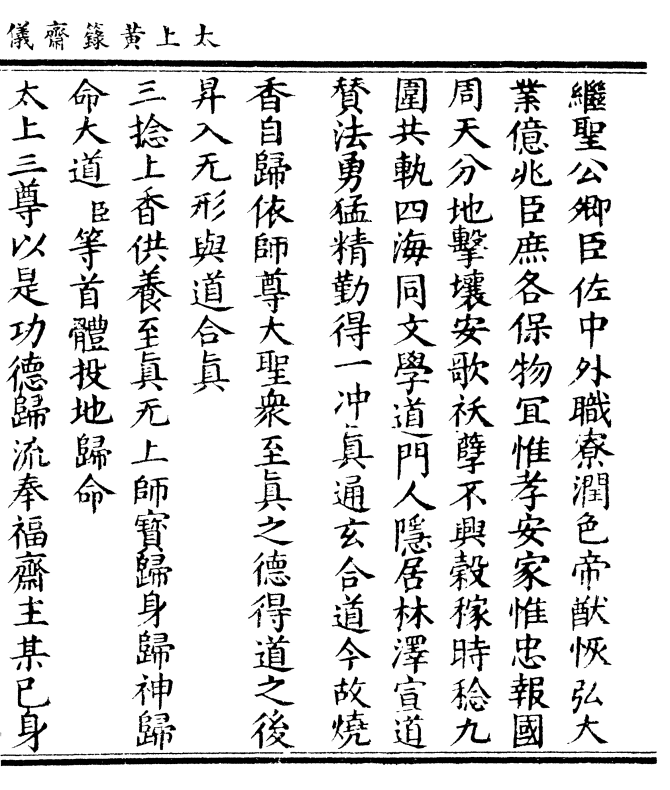 太上黃籙齋儀
繼聖公卿臣佐中外職寮潤色帝猷恢弘大
業億兆臣庶各保物冝惟孝安家惟忠報國
周天分地擊壤安歌祅孽不興穀稼時稔九
圍共軌四海同文學道門人隱居林澤宣道
賛法勇猛精勤得一冲眞通玄合道今故燒
香自歸依師尊大聖衆至眞之德得道之後
昇入无形與道合眞
三捻上香供養至眞无上師寶歸身歸神歸
命大道臣等首體投地歸命
太上三尊以是功德歸流奉福齋主某已身